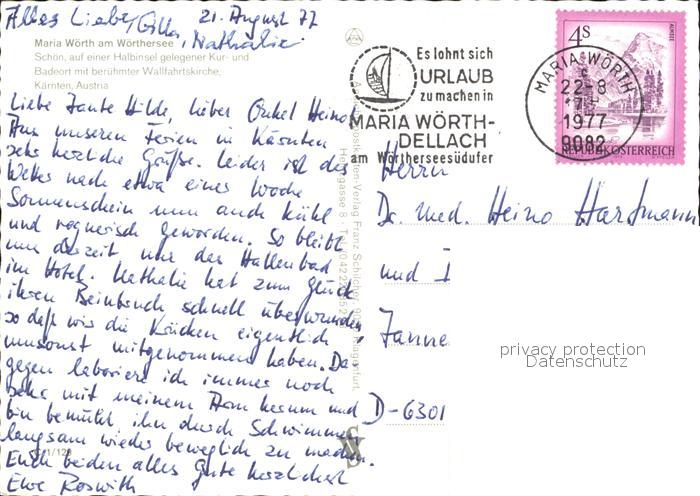 Alles Liebe, Gilla, Nathalie
21. August 77
Maria Wörth am Wörthersee
Schön, auf einer Halbinsel gelegener Kur- und
Badeort mit berühmter Wallfahrtskirche,
Kärnten, Austria
Liebe Tante Hilde, lieber Onkel Heino!
Aus unseren Ferien in Kärnten
sehr herzliche Grüße. Leider ist das
Wetter nach etwa einer Woche
Sonnenschein nun auch kühl
und regnerisch geworden. So bleibt
nun derzeit nur das Hallenbad
im Hotel. Nathalie hat zum Glück
ihren Beinbruch schnell überwunden,
so daß wir die Krücken eigentlich
umsonst mitgenommen haben. Da-
gegen laboriere ich immer noch
sehr mit meinem Arm herum und
bin bemüht, ihn durch Schwimmen
langsam wieder beweglich zu machen.
Euch beiden alles Gute herzlichst
Eure Roswith
1/129
Postkarten-Verlag Franz Schilcher
Es lohnt sich
URLAUB
zu machen in
MARIA WÖRTH-
DELLACH
am Wörtherseesüdufer
MARIA WÖRTH
22-8
1977
9082
4S
REPUBLIK ÖSTERREICH
Herrn
Dr. med. Heino Hartmann
und
Tanne
D-6301
privacy protection
Datenschutz